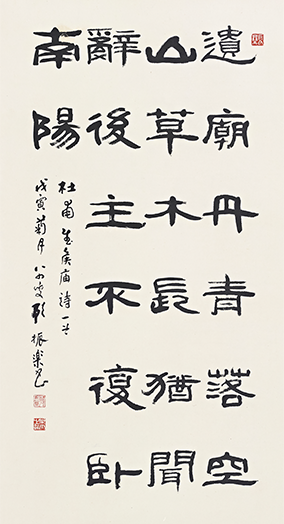 遺廟丹青落空
山草木長猶聞
辭後主不復卧
南陽
杜甫武侯庙詩一首
戊寅菊月八四叟顧振樂書